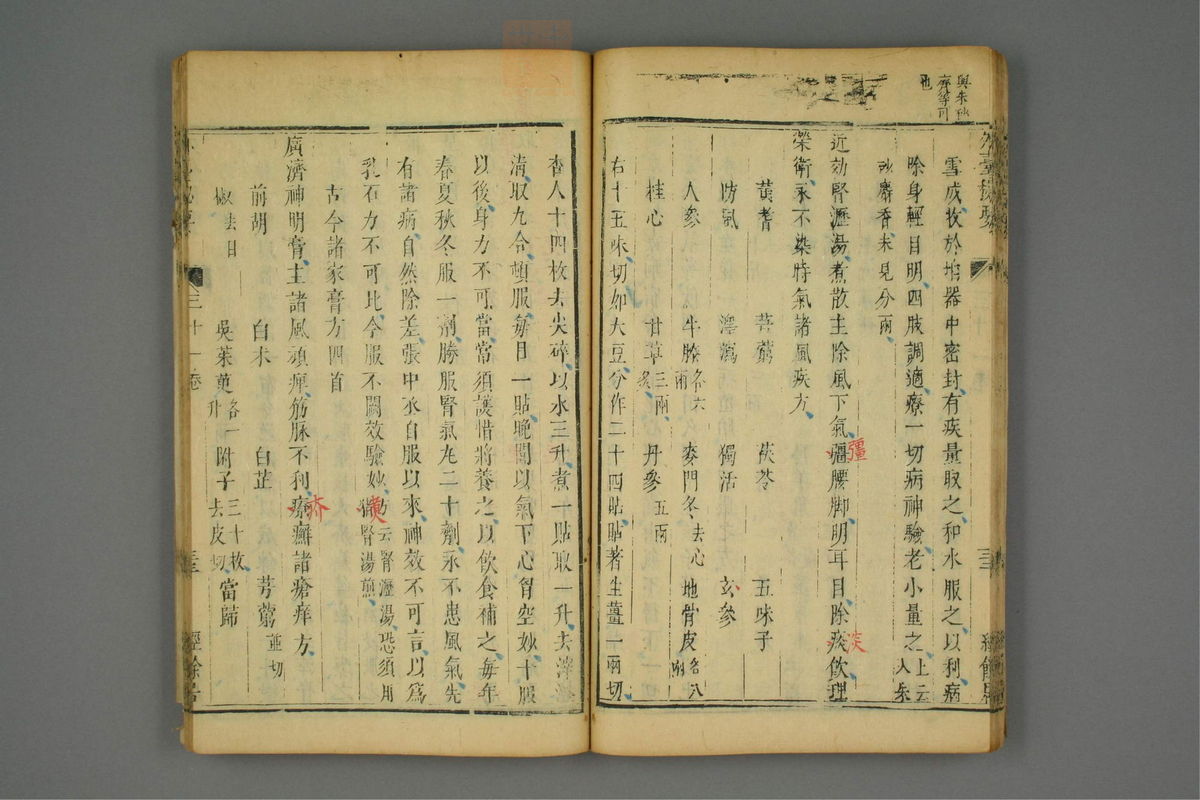 與朱砂
齊等可
也
外臺秘要
雪成收於垍器中密封有疾量取之和水服之以利病
除身輕目明四肢調適療一切病神驗老小量之上云入朱
砂麝香末見分兩
近効腎瀝湯煮散主除風下氣疆腰脚明耳目除痰飲理
彊
淡
榮衛永不染時氣諸風疾方
黃耆 芎藭 茯苓 五味子
防風 澤瀉 獨活 玄參
人參 牛膝各六兩 麥門冬去心 地骨皮各八兩
桂心 甘草三兩炙 丹參五兩
右十五味切如大豆分作二十四貼貼著生薑一兩切
杏人十四枚去尖碎以水三升煮一貼取一升去滓
清取九合頓服每日一貼晚間以氣下心胷空妙十服
以後身力不可當常須護惜將養之以飲食補之每年
春夏秋冬服一劑勝服腎氣丸二十劑永不患風氣先
有諸病自然除差張中丞自服以來神效不可言以爲
乳石力不可比今服不闕效驗妙方云腎瀝湯恐須用獺腎湯煎
古今諸家膏方四首
廣濟神明膏主諸風頑痺筋脉不利療癬諸瘡痒方
疥
前胡 白朮 白芷 芎藭並切
椒去目 吳茱萸各一升 附子三十枚去皮切 當歸
三十一卷
經餘居